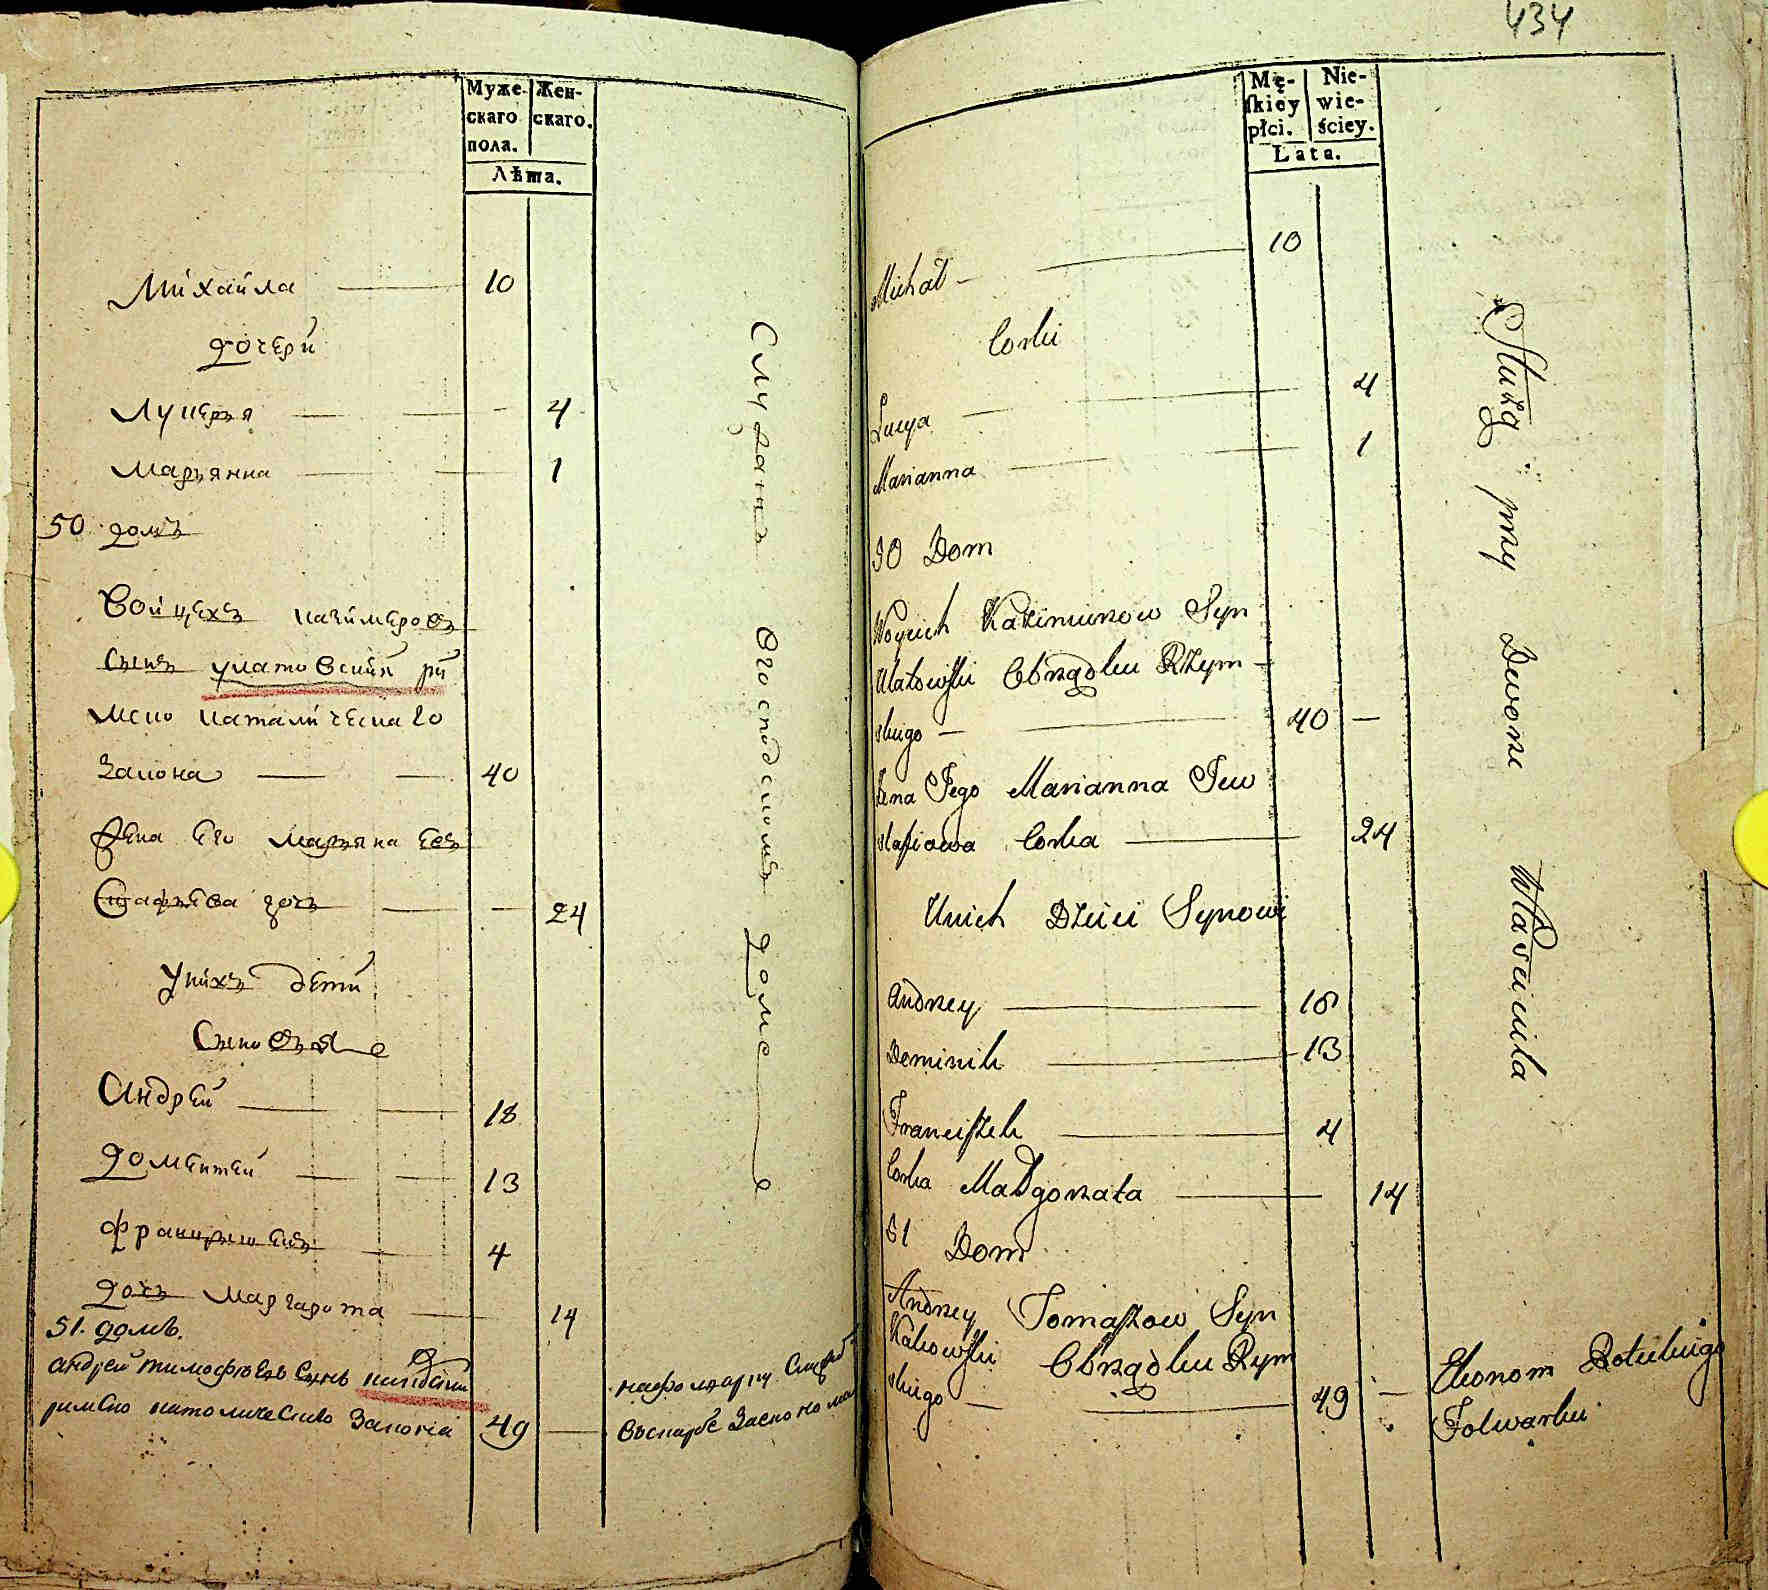 Муже-
скаго
пола.
Жен-
скаго.
Лѣта.
Михайла 10
дочери
Луцея 4
Марьянна 1
50 домъ
Войцехъ Казимеровъ
сынъ Улатовский ри
мско католическаго
закона 40
Жена Его Марьяна Евъ
стафьева дочь 24
Унихъ дети
Сыновья
Андрей 18
Доментей 13
Францышекъ 4
дочь Маргарота 14
51. домъ.
андрей тимофѣевъ Сынъ
римско католическаго Закона 49
Служатъ
вгосподскомъ доме
434
Mę-
ſkiey
płci.
Nie-
wie-
ściey.
Lata.
Michał 10
Corki
Lucya 4
Marianna 1
50 Dom
Woyciech Kazimirzow Syn
Ulatowſki Obrządku Rzym
skiego 40
żena Jego Marianna Jew
staſiowa Corka 24
Unich Dzieci Synowi
Andrzey 18
Dominik 13
Franciſzek 4
Corka Małgorzata 14
51 Dom
Andrzey Tomaſzow Syn
Obrządku Rzym
skiego 49
Służą przy Dworze Własciciela
Ekonom
Folwarku